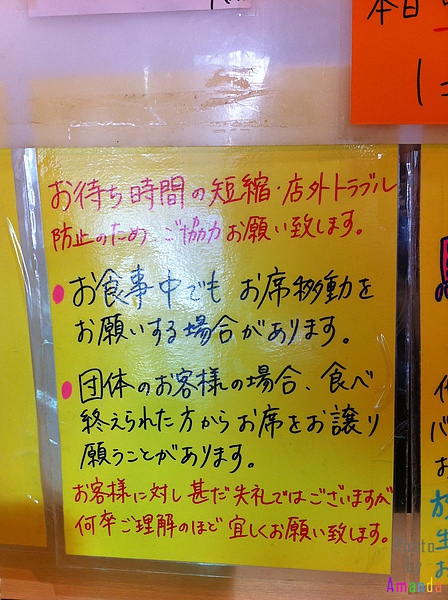 本日
お待ち時間の短縮・店外トラブル
防止のため、ご協力お願い致します。
● お食事中でも お席移動を
お願いする場合があります。
● 団体のお客様の場合、食べ
終えられた方からお席をお譲り
願うことがあります。
お客様に対し甚だ失礼ではございますが
何卒ご理解のほど 宜しくお願い致します。
Photo
by
Amanda